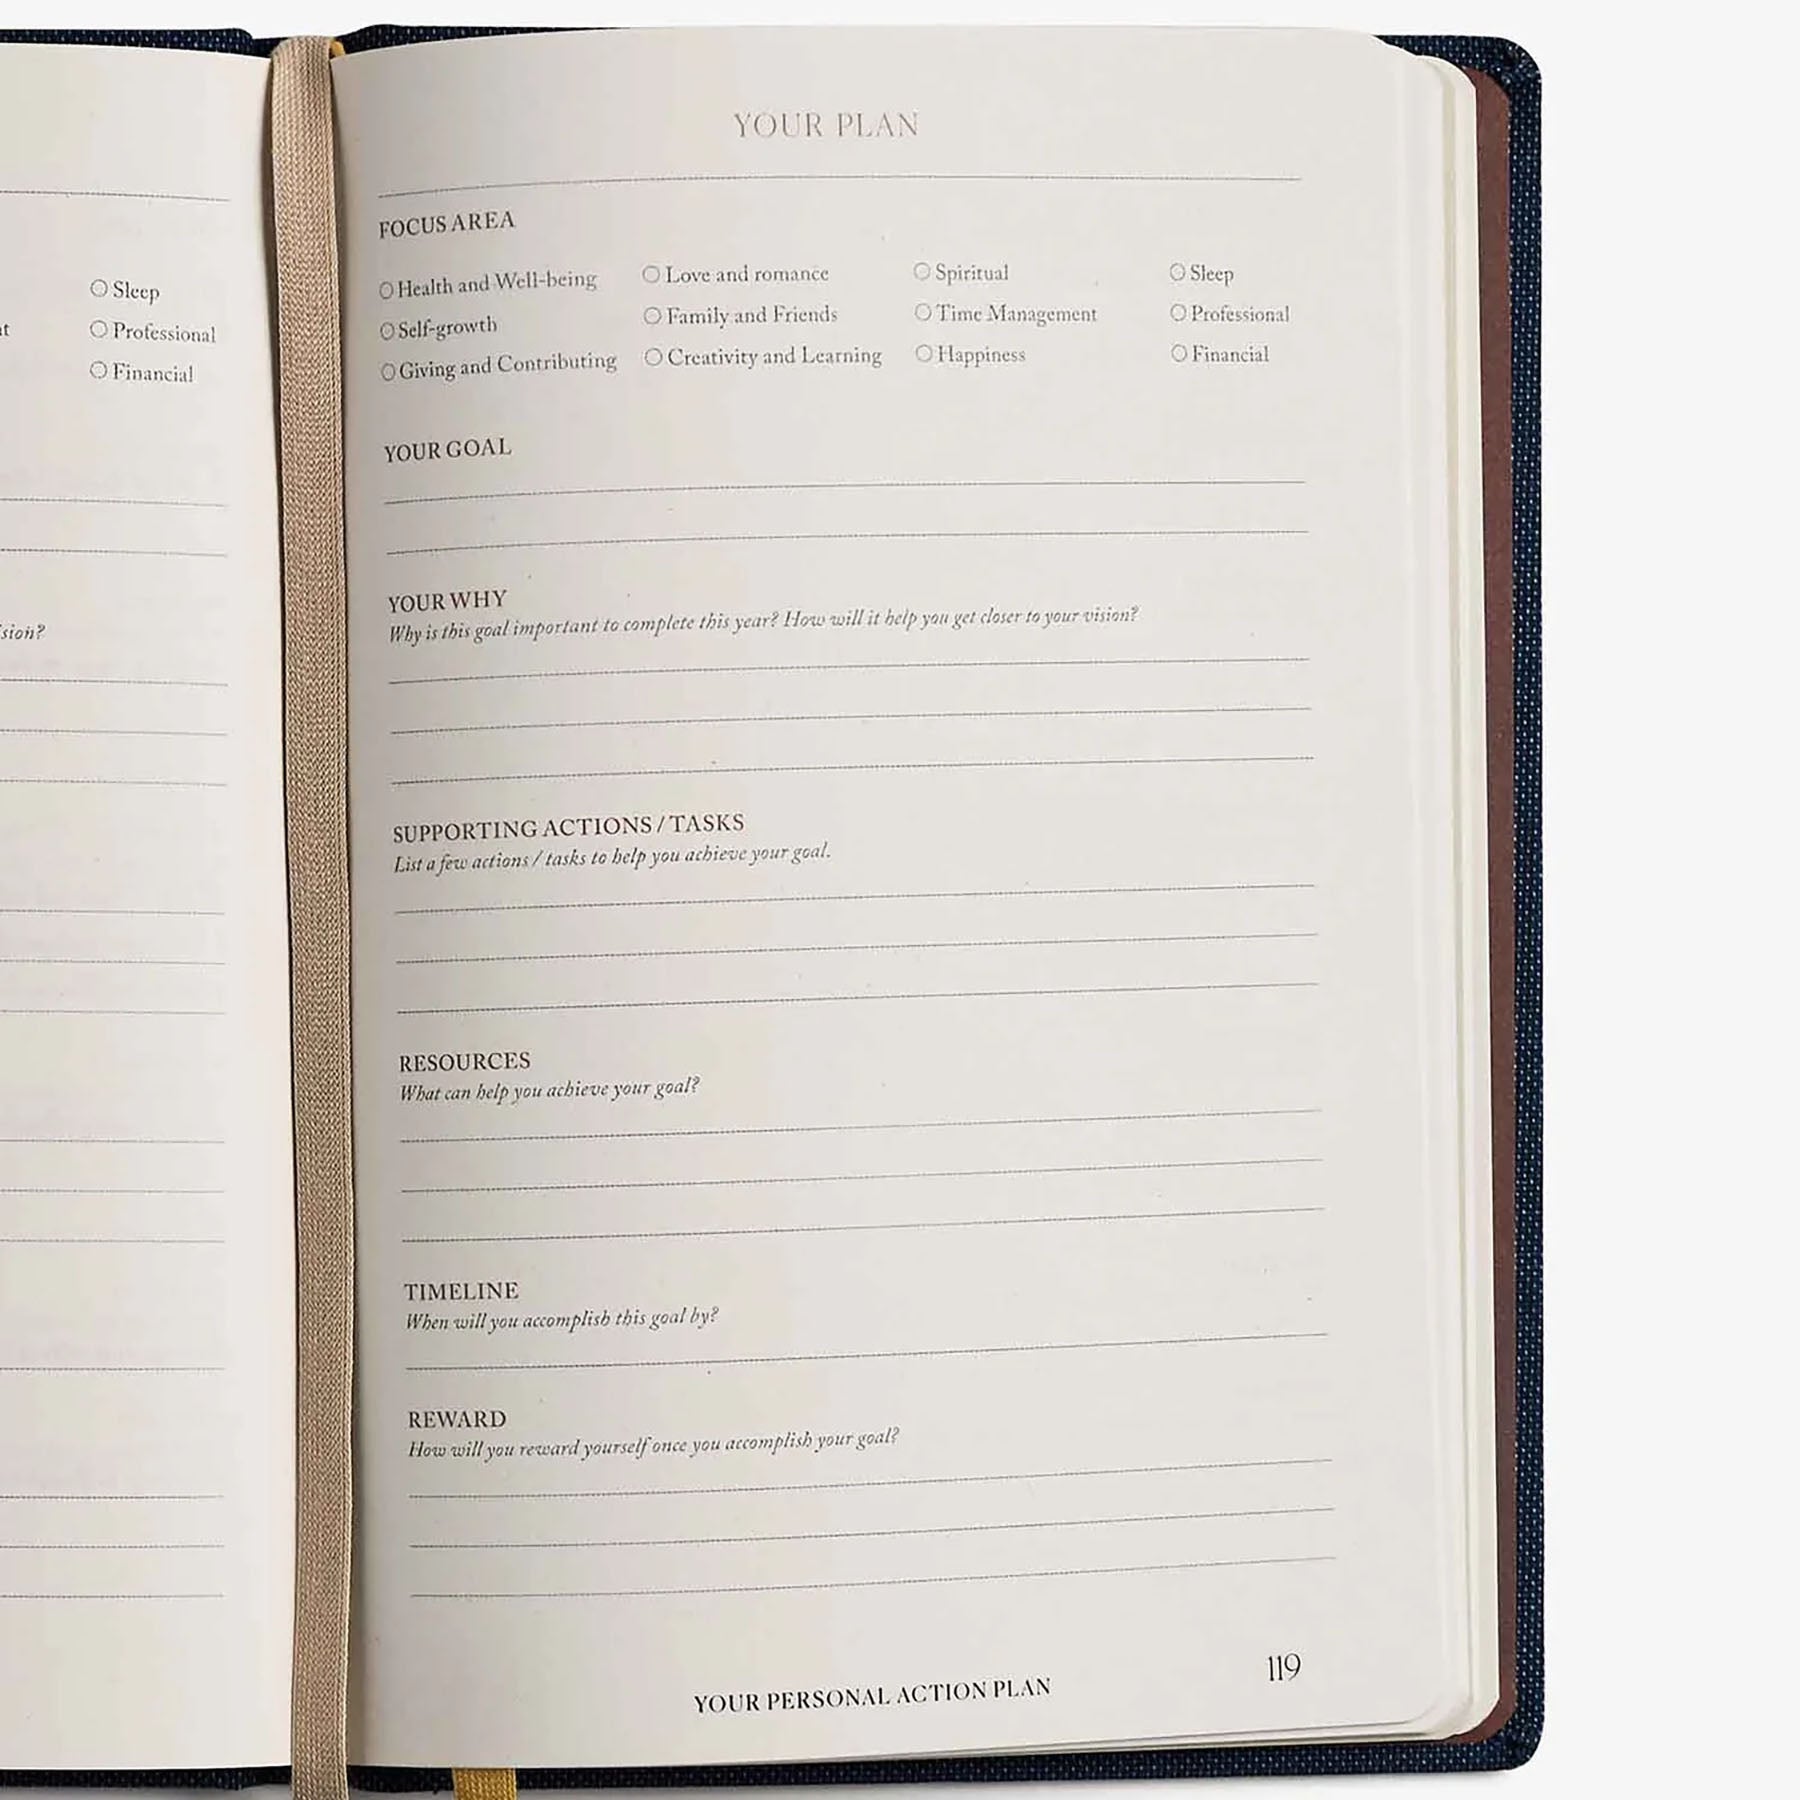 Sleep
Professional
Financial
YOUR PLAN
FOCUS AREA
Health and Well-being Love and romance Spiritual Sleep
Self-growth Family and Friends Time Management Professional
Giving and Contributing Creativity and Learning Happiness Financial
YOUR GOAL
YOUR WHY
Why is this goal important to complete this year? How will it help you get closer to your vision?
SUPPORTING ACTIONS / TASKS
List a few actions / tasks to help you achieve your goal.
RESOURCES
What can help you achieve your goal?
TIMELINE
When will you accomplish this goal by?
REWARD
How will you reward yourself once you accomplish your goal?
119
YOUR PERSONAL ACTION PLAN